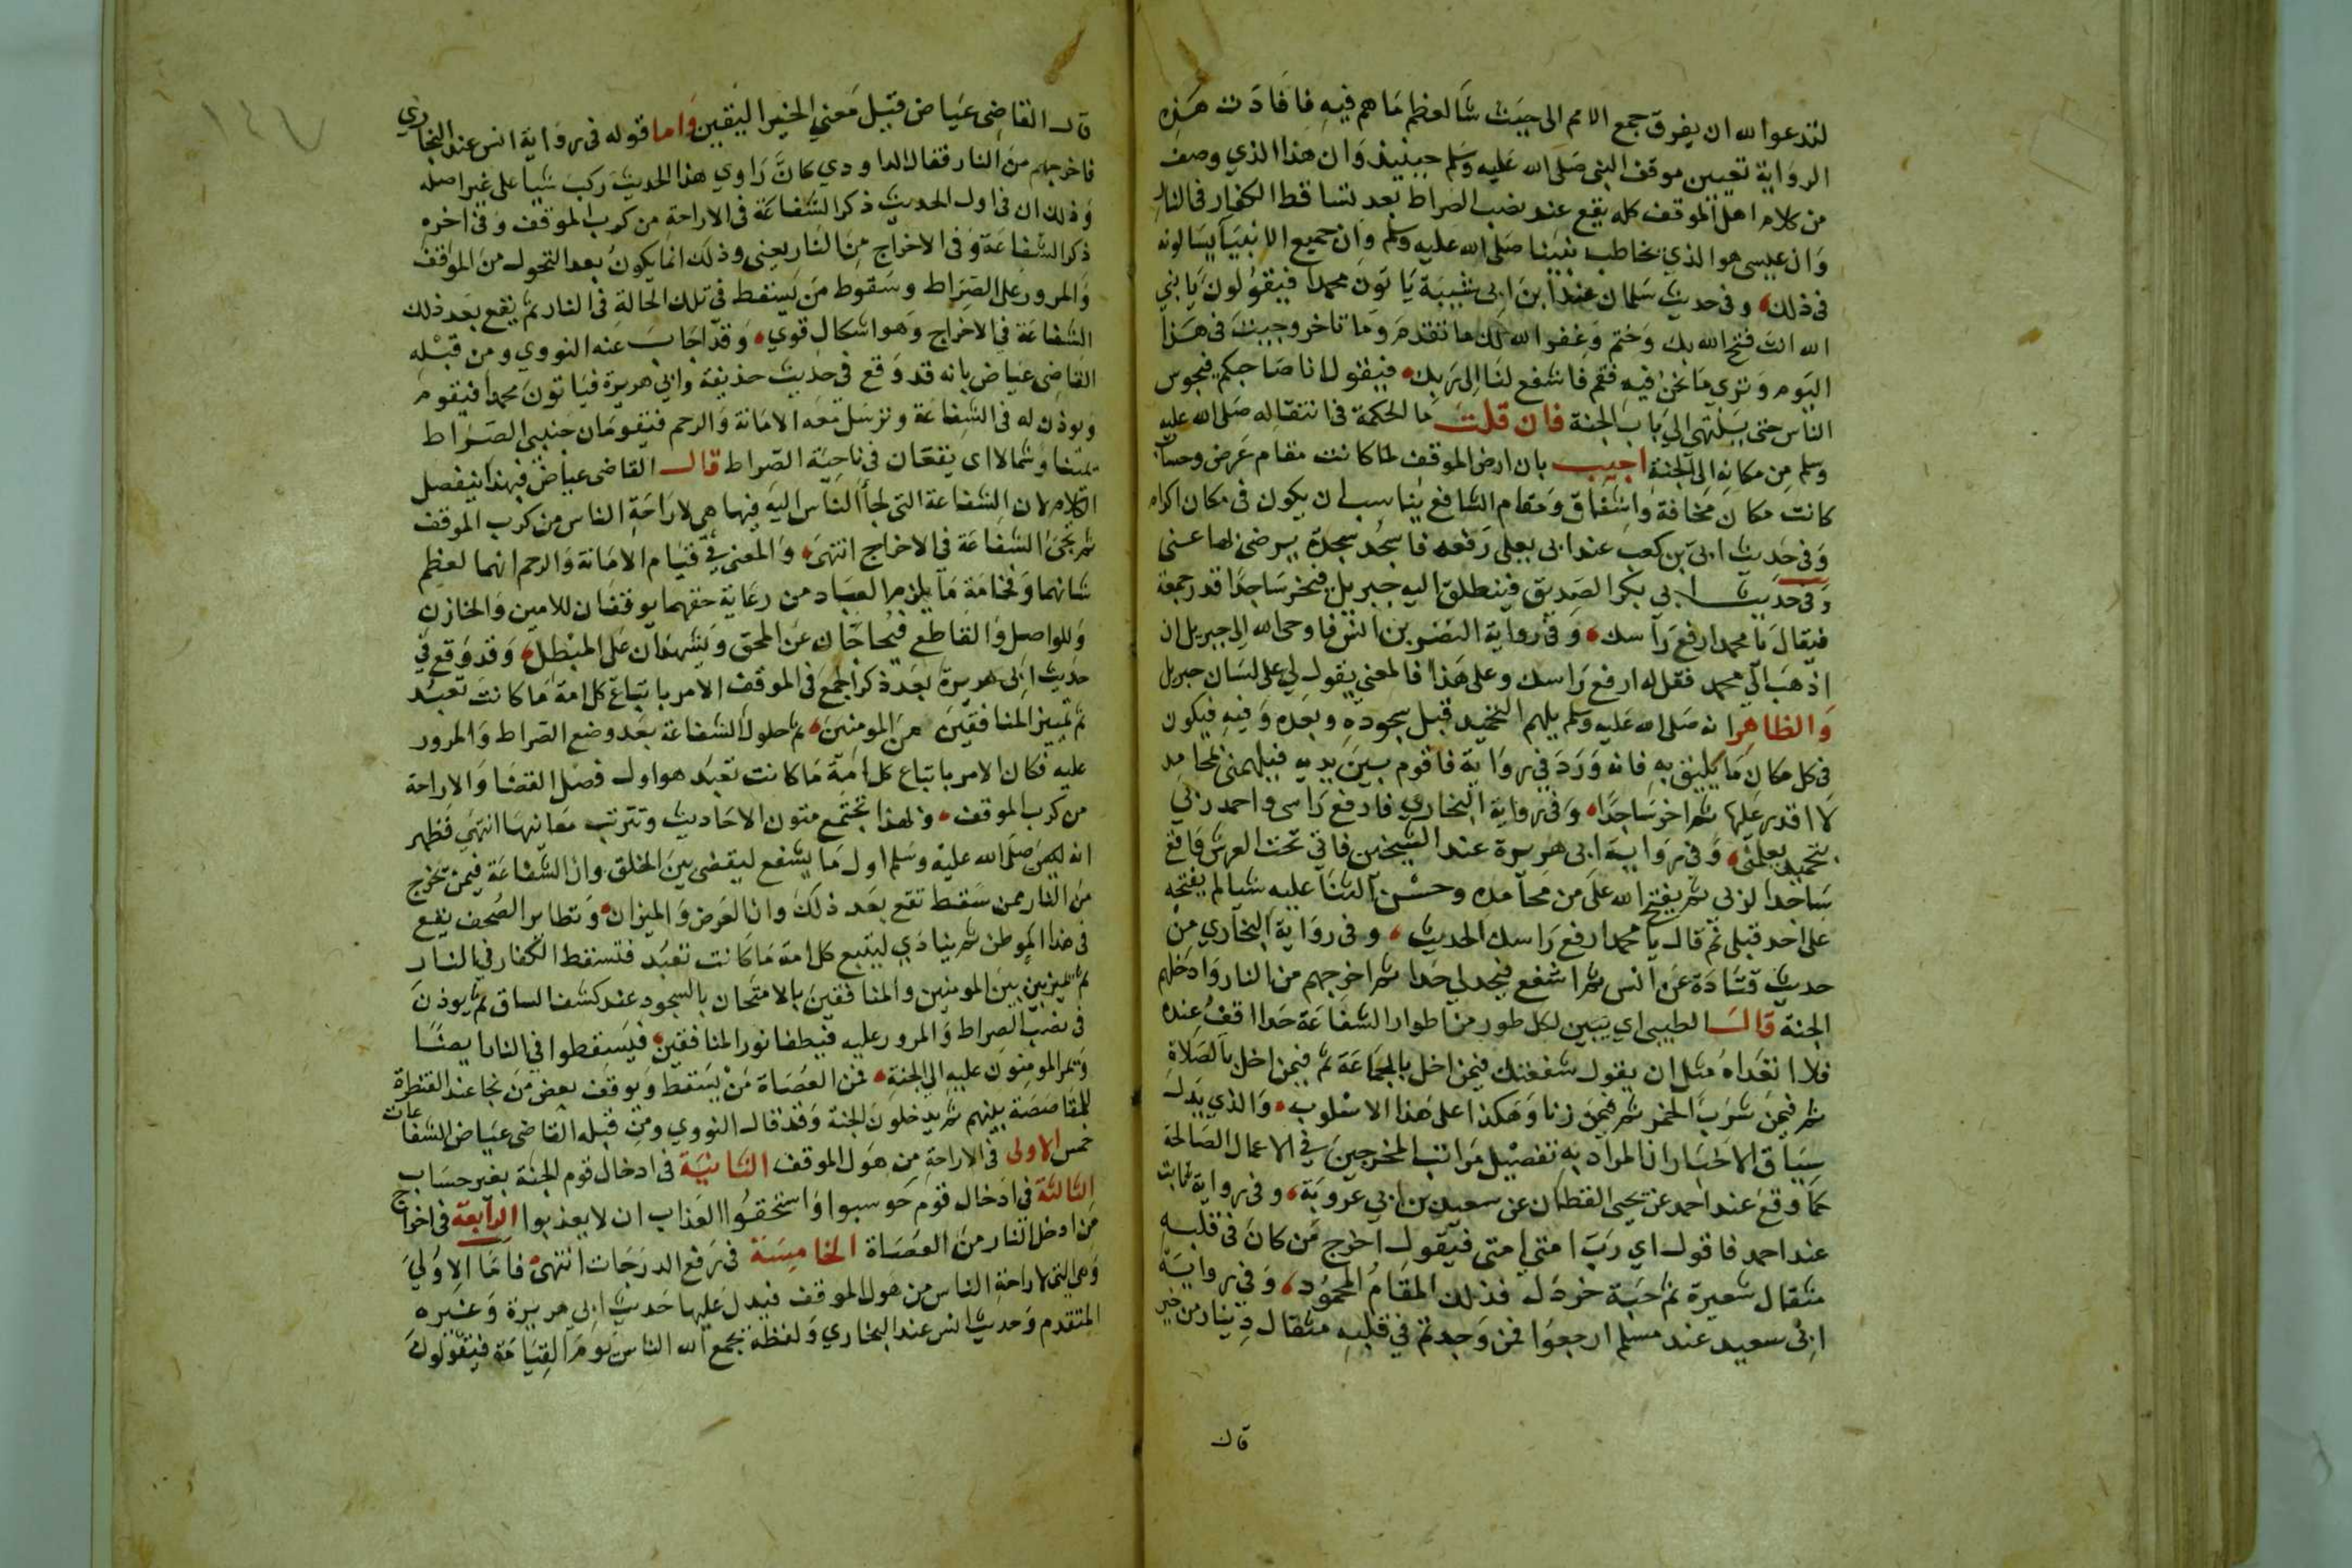 لتدعوا لله ان يفرق جمع الامم الى حيث شا لعظم ما هم فيه فافادت هذه
الرواية تعيين موقف النبى صلى الله عليه وسلم حينيذ وان هذا الذي وصف
من كلام اهل الموقف كله يقع عند نصب الصراط بعد تساقط الكفار فى النار
وان عيسى هو الذي يخاطب نبينا صلى الله عليه وسلم وان جميع الانبيا يسالونه
فى ذلك وفى حديث سلمان عند ابن ابى شيبة ياتون محمدا فيقولون يا نبي
الله انت فتح الله بك وختم وغفر الله لك ما تقدم وما تاخر وجيت فى هذا
اليوم وتري ما نحن فيه فقم فاشفع لنا الى ربك فيقول انا صاحبكم فيجوس
الناس حتى ينتهى الى باب الجنة فان قلت ما الحكمة فى انتقاله صلى الله عليه
وسلم من مكانه الى الجنة اجيب بان ارض الموقف لما كانت مقام عرض وحساب
كانت مكان مخافة واشفاق ومقام الشافع يناسب ان يكون فى مكان اكرام
وفى حديث ابى بن كعب عند ابى يعلى رفعه فاسجد سجدة يرضى بها عنى
وفى حديث ابي بكر الصديق فينطلق اليه جبريل فيخر ساجدا قدر جمعة
فيقال يا محمد ارفع راسك وفى رواية النضر بن انس فاوحى الله الى جبريل ان
اذهب الى محمد فقل له ارفع راسك وعلى هذا فالمعنى يقول لي على لسان جبريل
والظاهر انه صلى الله عليه وسلم يلهم التحميد قبل سجوده وبعده وفيه فيكون
فى كل مكان ما يليق به فانه ورد فى رواية فاقوم بين يديه فيلهمنى بمحامد
لا اقدر عليها ثم اخر ساجدا وفى رواية البخارى فارفع راسى واحمد ربي
بتحميد يعلمنى وفى رواية ابى هريرة عند الشيخين فاتى تحت العرش فاقع
ساجدا لربى ثم يفتح الله على من محامده وحسن الثنا عليه شيا لم يفتحه
على احد قبلى ثم قال يا محمد ارفع راسك الحديث وفى رواية البخاري من
حديث قتادة عن انس ثم اشفع فيحد لى حدا ثم اخرجهم من النار وادخلهم
الجنة قال الطيبى اي يبين لكل طور من اطوار الشفاعة حدا اقف عنده
فلا اتعداه مثل ان يقول شفعتك فيمن اخل بالجماعة ثم فيمن اخل بالصلاة
ثم فيمن شرب الخمر ثم فيمن زنا وهكذا على هذا الاسلوب والذي يدل
سياق الاخبار ان المراد به تفصيل مراتب المخرجين فى الاعمال الصالحة
كما وقع عند احمد عن يحيى القطان عن سعيد بن ابي عروبة وفى رواية ثابت
عند احمد فاقول اي رب امتي امتى فيقول اخرج من كان فى قلبه
مثقال شعيرة ثم حبة خردل فذلك المقام المحمود وفى رواية
ابى سعيد عند مسلم ارجعوا فمن وجدتم فى قلبه مثقال دينار من خير
قال
قال القاضى عياض قيل معنى الخير اليقين واما قوله فى رواية انس عند البخاري
فاخرجهم من النار فقال الداودي كان راوي هذا الحديث ركب شيا على غير اصله
وذلك ان فى اول الحديث ذكر الشفاعة فى الاراحة من كرب الموقف وفى اخره
ذكر الشفاعة فى الاخراج من النار يعنى وذلك انما يكون بعد التحول من الموقف
والمرور على الصراط وسقوط من يسقط فى تلك الحالة فى النار ثم يقع بعد ذلك
الشفاعة فى الاخراج وهو اشكال قوي وقد اجاب عنه النووي ومن قبله
القاضى عياض بانه قد وقع فى حديث حذيفة وابي هريرة فياتون محمدا فيقوم
ويوذن له فى الشفاعة وترسل معه الامانة والرحم فيقومان جنبى الصراط
يمينا وشمالا اى يقفان فى ناحية الصراط قال القاضى عياض فبهذا ينفصل
الكلام لان الشفاعة التى لجا الناس اليه فيها هى لاراحة الناس من كرب الموقف
ثم تجى الشفاعة فى الاخراج انتهى والمعنى فى قيام الامانة والرحم انهما لعظم
شانهما وفخامة ما يلزم العباد من رعاية حقهما يوقفان للامين والخاين
وللواصل والقاطع فيحاجان عن المحق ويشهدان على المبطل وقد وقع فى
حديث ابى هريرة بعد ذكر الجمع فى الموقف الامر باتباع كل امة ما كانت تعبد
ثم تمييز المنافقين من المومنين ثم حلول الشفاعة بعد وضع الصراط والمرور
عليه فكان الامر باتباع كل امة ما كانت تعبد هو اول فصل القضا والاراحة
من كرب الموقف وبهذا تجتمع متون الاحاديث وتترتب معانيها انتهى فظهر
انه صلى الله عليه وسلم اول ما يشفع ليقضى بين الخلق وان الشفاعة فيمن يخرج
من النار ممن سقط تقع بعد ذلك وان العرض والميزان وتطاير الصحف يقع
فى هذا الموطن ثم ينادي ليتبع كل امة ما كانت تعبد فتسقط الكفار فى النار
ثم يميز بين المومنين والمنافقين بالامتحان بالسجود عند كشف الساق ثم يوذن
فى نصب الصراط والمرور عليه فيطفا نور المنافقين فيسقطوا فى النار ايضا
وتمر المومنون عليه الى الجنة فمن العصاة من يسقط ويوقف بعض من نجا عند القنطرة
للمقاصصة بينهم ثم يدخلون الجنة وقد قال النووي ومن قبله القاضى عياض الشفاعات
خمس الاولى فى الاراحة من هول الموقف الثانية فى ادخال قوم الجنة بغير حساب
الثالثة فى ادخال قوم حوسبوا واستحقوا العذاب ان لا يعذبوا الرابعة فى اخراج
من ادخل النار من العصاة الخامسة فى رفع الدرجات انتهى فاما الاولى
وهي التى لاراحة الناس من هول الموقف فيدل عليها حديث ابي هريرة وغيره
المتقدم وحديث انس عند البخاري ولفظه يجمع الله الناس يوم القيامة فيقولون